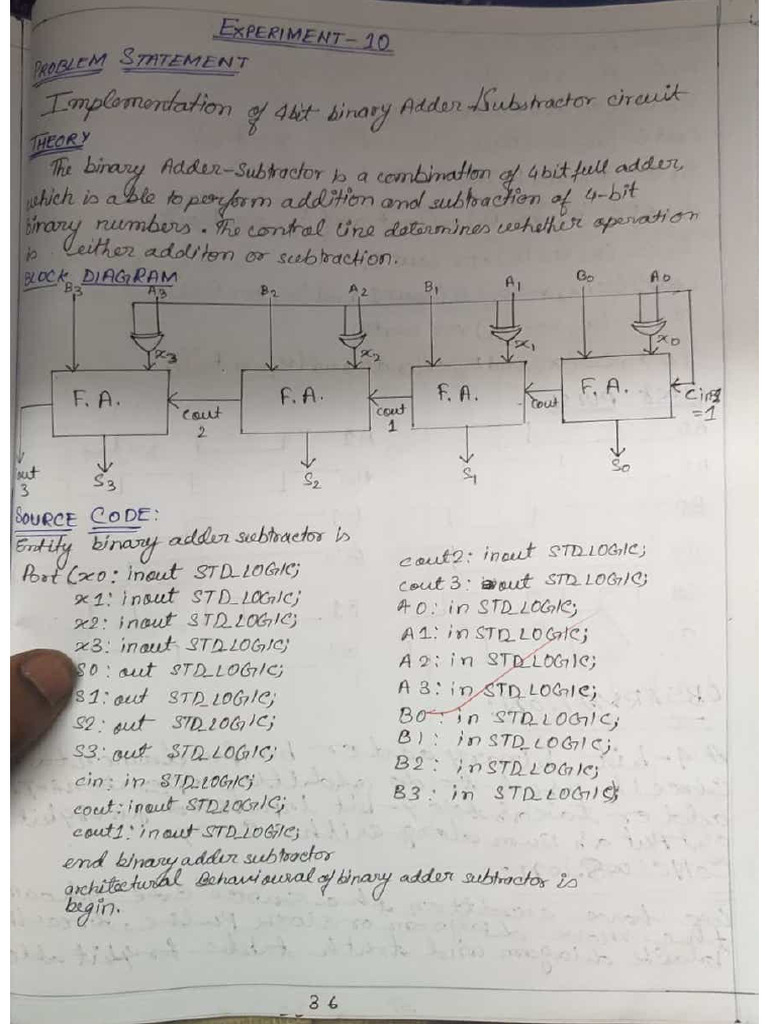 EXPERIMENT-10
PROBLEM STATEMENT
Implementation of 4bit binary Adder/Substractor circuit
THEORY
The binary Adder-Subtractor is a combination of 4bit full adder,
which is able to perform addition and subtraction of 4-bit
binary numbers. The control line determines whether operation
is either additon or subtraction.
BLOCK DIAGRAM
B3 A3 B2 A2 B1 A1 B0 A0
x3 x2 x1 x0
F.A. F.A. F.A. F.A.
cout 2 cout 1 cout Cin =1
out 3
S3 S2 S1 S0
SOURCE CODE:
Entity binary adder subtractor is
Port (x0: inout STD_LOGIC;
x1: inout STD_LOGIC;
x2: inout STD_LOGIC;
x3: inout STD_LOGIC;
S0: out STD_LOGIC;
S1: out STD_LOGIC;
S2: out STD_LOGIC;
S3: out STD_LOGIC;
cin: in STD_LOGIC;
cout: inout STD_LOGIC;
cout1: inout STD_LOGIC;
cout2: inout STD_LOGIC;
cout3: out STD_LOGIC;
A0: in STD_LOGIC;
A1: in STD_LOGIC;
A2: in STD_LOGIC;
A3: in STD_LOGIC;
B0: in STD_LOGIC;
B1: in STD_LOGIC;
B2: in STD_LOGIC;
B3: in STD_LOGIC);
end binary adder subtractor
architectural Behavioural of binary adder subtractor is
begin.
36